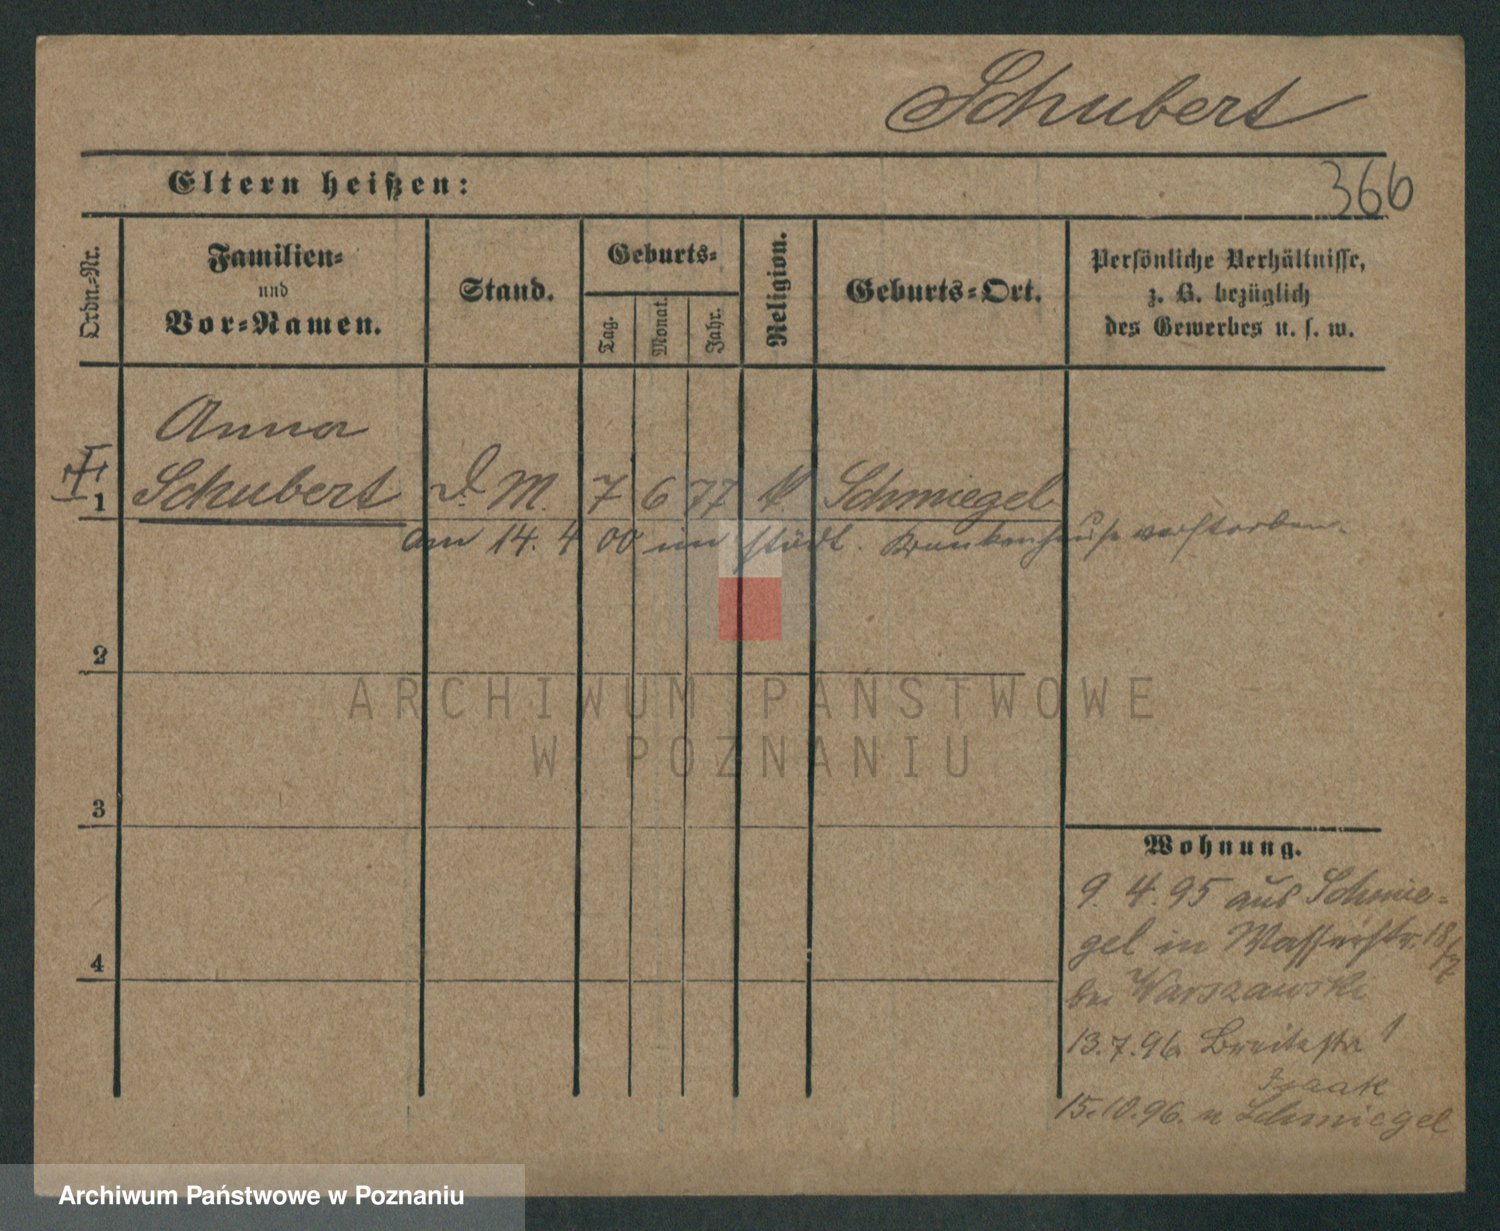 Schubert
Eltern heißen:
366
Ordn.-Nr.
Familien-
und
Vor-Namen.
Stand.
Geburts-
Tag.
Monat.
Jahr.
Religion.
Geburts-Ort.
Persönliche Verhältnisse,
z. B. bezüglich
des Gewerbes u. s. w.
Anna
1 Schubert D. M. 7 6 77 K Schmiegel
am 14. 4 00 im städt. Krankenhause verstorben.
2
ARCHIWUM PAŃSTWOWE
W POZNANIU
3
4
Wohnung.
9. 4. 95 aus Schmie-
gel in Wasserstr. 18/
bei Warszawski
13.7.96 Breitestr 1
Isaak
15.10.96. n Schmiegel
Archiwum Państwowe w Poznaniu